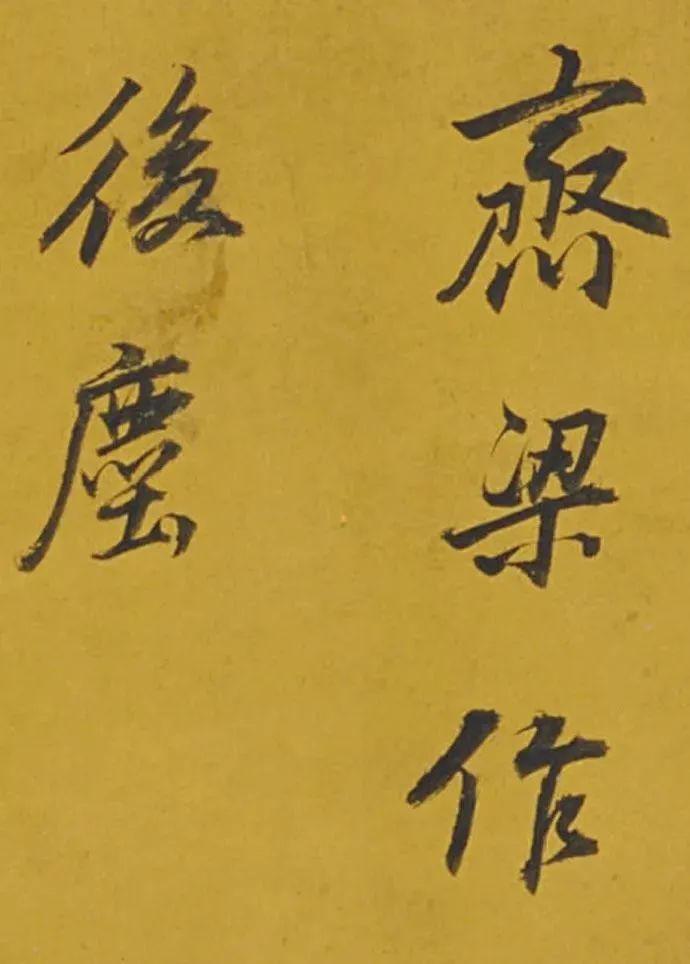 齊梁作
後塵